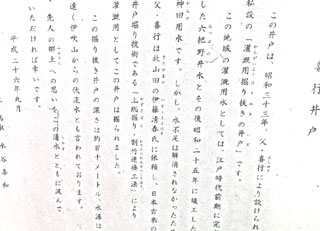 喜行井戸
この井戸は、昭和三十三年 父、喜行により設けられ
私設の「灌漑用掘り抜きの井戸」です。
この地域の灌漑用水としては、江戸時代前期に完
した六把野井水とその後昭和二十五年に竣工した
神田用水です。しかし、水不足は解消されなかったた
父・喜行は北山田の伊藤清春氏に依頼し、日本古来の
井戸掘り技術である「上総掘り・割竹連伸工法」により
灌漑用としてこの井戸は掘られました。
この掘り抜き井戸の深さは約百十メートル、水源は
遠く伊吹山からの伏流水とも言われております。
先人の郷土への思いを、この清水とともに汲んで
いただければ幸いです。
平成二十六年九月
水谷喜和